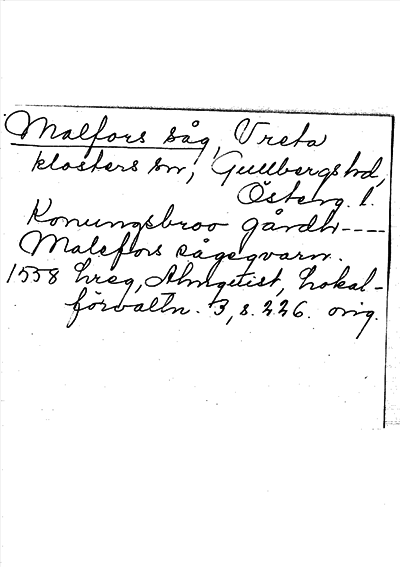 Malfors såg, Vreta
klosters sn, Gullbergs hd,
Österg. l.
Konungsbroo gårdh----
Malsfors sågeqvarn.
1558 hreg, Almqvist, Lokal-
förvaltn. 3, s. 226. orig.